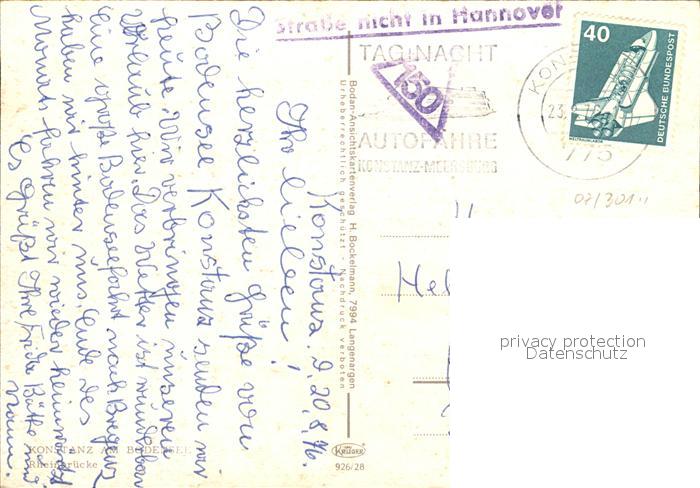 Straße nicht in Hannover
TAG+NACHT
AUTOFÄHRE
KONSTANZ-MEERSBURG
150
KON
23.
775
40
DEUTSCHE BUNDESPOST
WELTRAUMLABOR
07/301
Konstanz. D. 20.8.76.
Ihr lieben!
Die herzlichsten Grüße von
Bodensee Konstanz senden wir
heute. Wir verbringen unseren
Urlaub hier. Das Wetter ist wunderbar
eine große Bodenseefahrt nach Bregenz
haben wir hinter uns. Ende des
Monats fahren wir wieder heimwärts
Es grüßt Ihre Frida
Bodan-Ansichtskartenverlag H. Bockelmann, 7994 Langenargen
Urheberrechtlich geschützt - Nachdruck verboten
Hel
KONSTANZ AM BODENSEE
Rheinbrücke
KRÜGER
926/28
privacy protection
Datenschutz